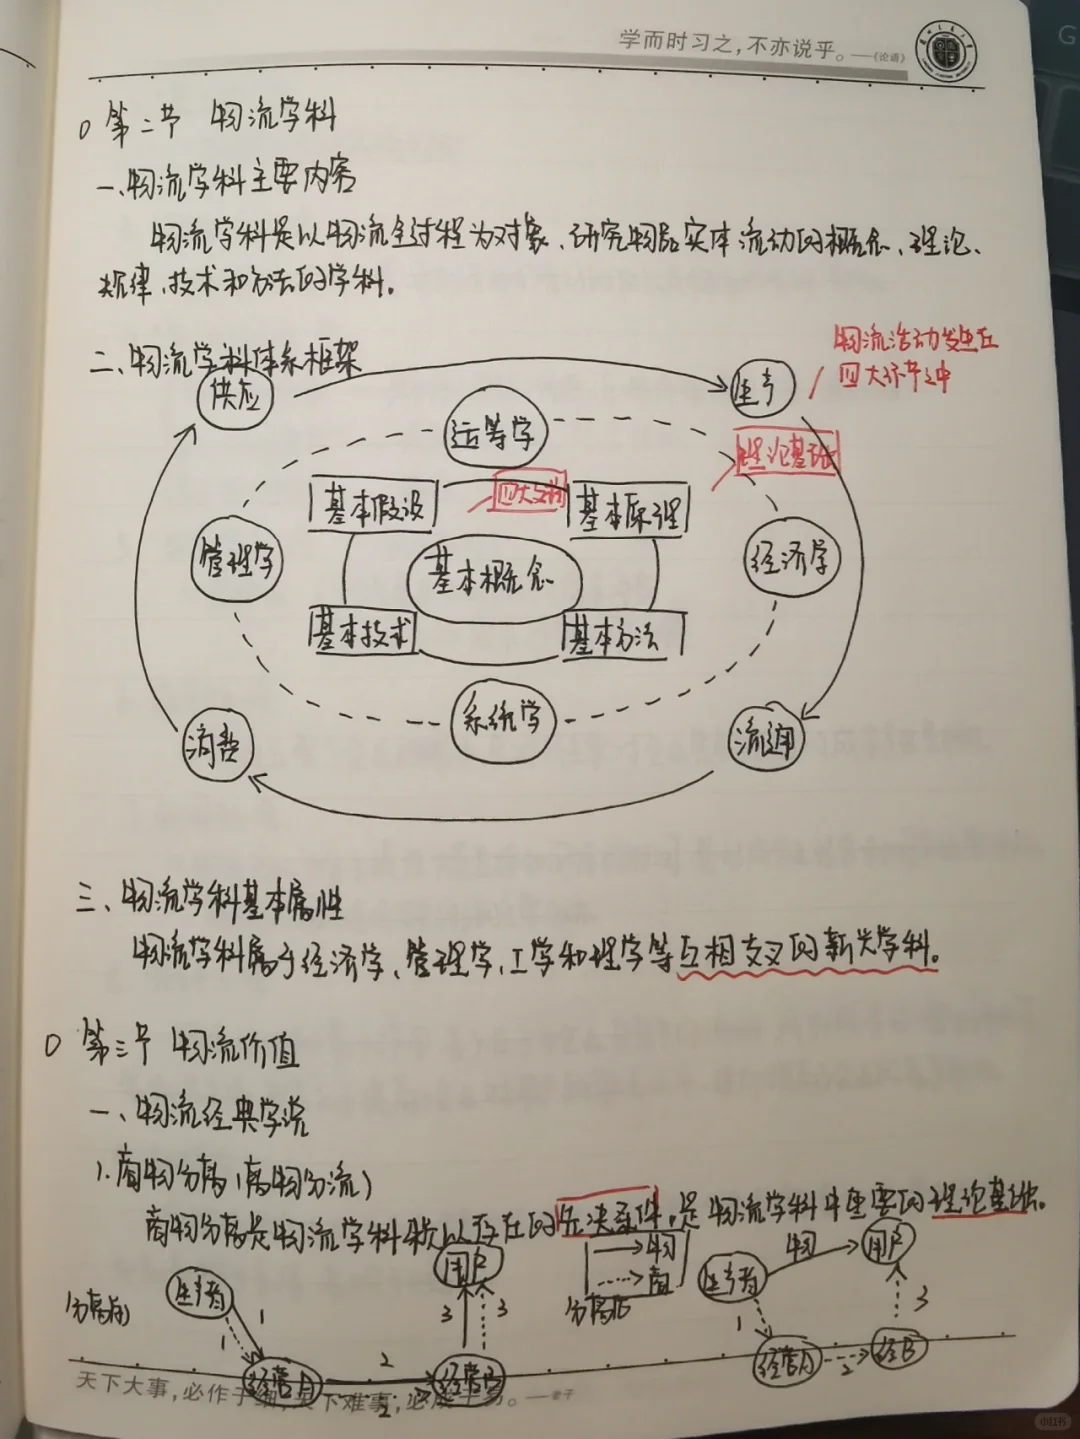 学而时习之,不亦说乎。——《论语》
第二节 物流学科
一、物流学科主要内容
物流学科是以物流全过程为对象、研究物品实体流动的概念、理论、
规律、技术和方法的学科。
二、物流学科体系框架
物流活动发生在
四大环节中
供应
生产
运筹学
理论基础
四大支柱
基本假设
基本原理
管理学
基本概念
经济学
基本技术
基本方法
系统学
消费
流通
三、物流学科基本属性
物流学科属于经济学、管理学、工学和理学等互相交叉的新兴学科。
第三节 物流价值
一、物流经典学说
1. 商物分离(商物分流)
商物分离是物流学科赖以存在的先决条件,是物流学科中重要的理论基础。
分离前
生产者
用户
1
1
3
3
经营A
2
2
经营B
物
商
分离后
生产者
物
用户
1
3
经营A
2
经B
天下大事,必作于细,天下难事,必成于易。——老子
小红书